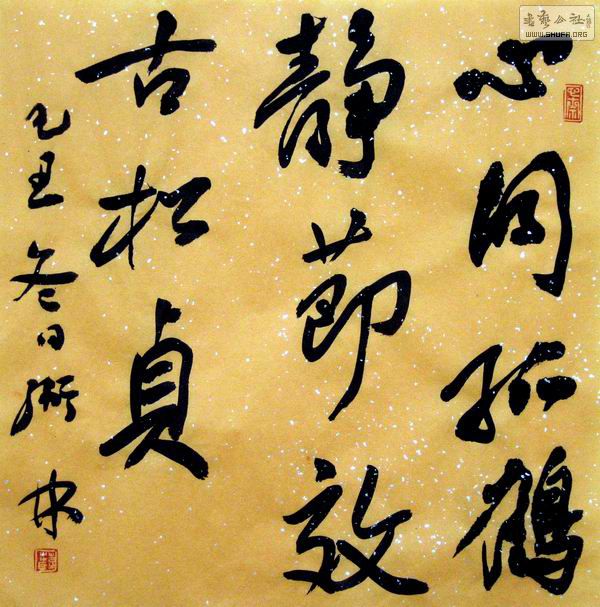 心同孤鶴
靜節效
古松貞
乙丑冬日
书艺公社
WWW.SHUFA.ORG